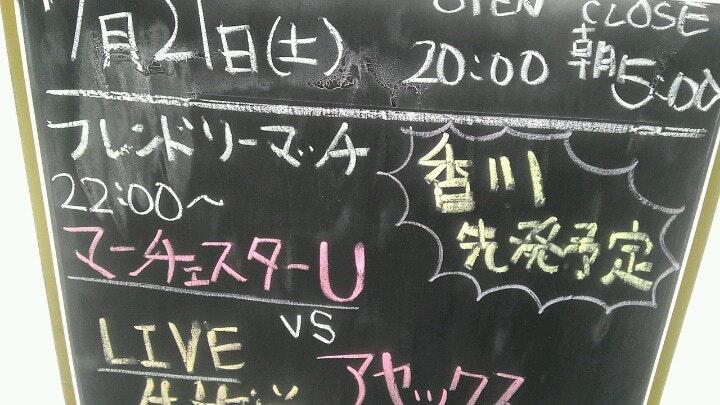 7月21日(土)
OPEN CLOSE
20:00 朝5:00
フレンドリーマッチ
22:00〜
香川
先発予定
マーチェスターU
VS
LIVE
アヤックス